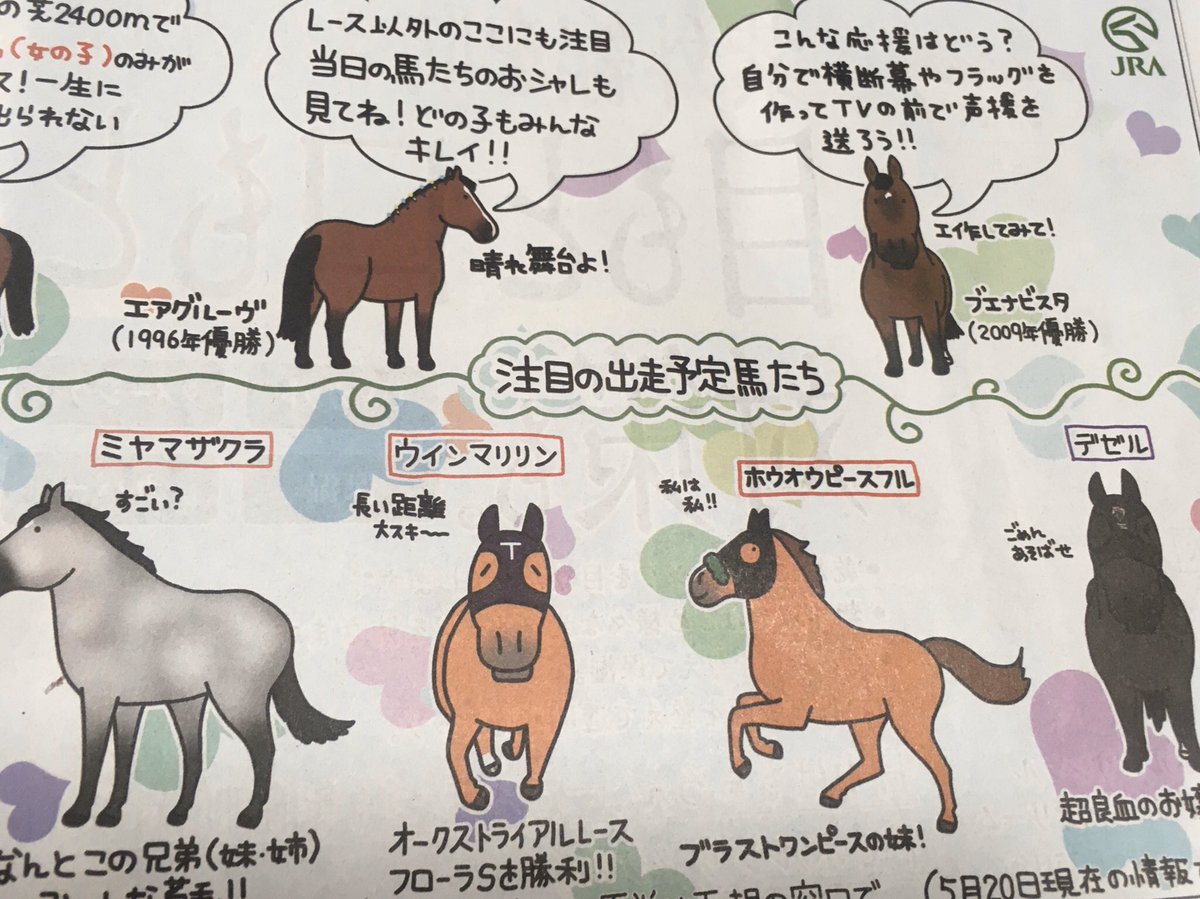 の芝2400mで
(女の子)のみが
ス!一生に
出られない
レース以外のここにも注目
当日の馬たちのおシャレも
見てね!どの子もみんな
キレイ!!
こんな応援はどう?
自分で横断幕やフラッグを
作ってTVの前で声援を
送ろう!!
JRA
晴れ舞台よ!
エアグルーヴ
(1996年優勝)
工作してみて!
ブエナビスタ
(2009年優勝)
注目の出走予定馬たち
ミヤマザクラ
すごい?
なんとこの兄弟(妹・姉)
ウインマリリン
長い距離
大スキ〜〜
T
オークストライアルレース
フローラSを勝利!!
ホウオウピースフル
私は
私!!
ブラストワンピースの妹!
デゼル
ごめん
あそばせ
超良血のお嬢
(5月20日現在の情報で